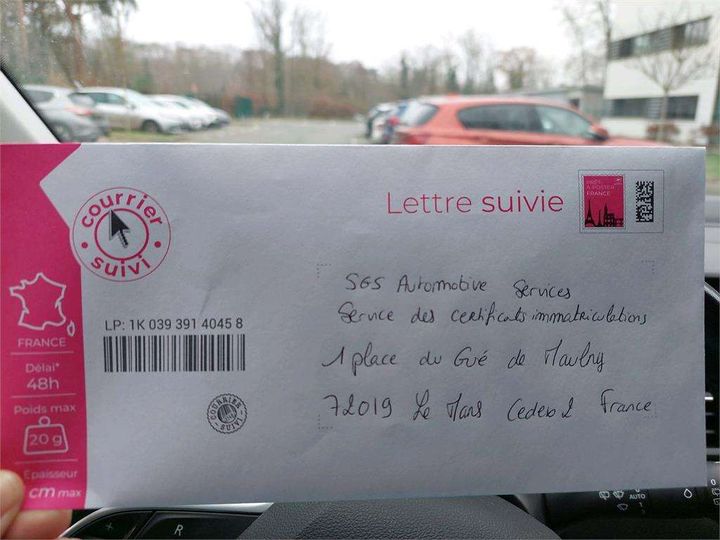 courrier
suivi
Lettre suivie
PRÊT-
À-POSTER
FRANCE
SGS Automotive Services
Service des certificats immatriculations
1 place du Gué de Maulny
72019 Le Mans Cedex 2 France
LP: 1K 039 391 4045 8
COURRIER
SUIVI
FRANCE
Délai*
48h
Poids max
20 g
Epaisseur
cm max
R
AUTO